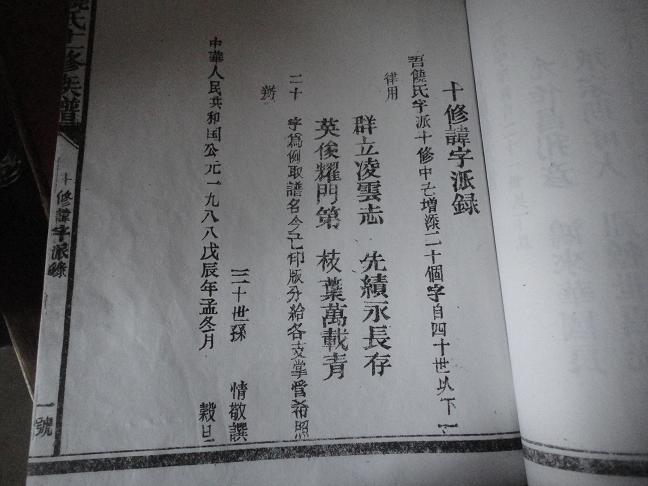 十修諱字派録
吾饒氏字派十修中已增添二十個字自四十世以下一
律用
群立凌雲志 先績永長存
英俊耀門第 枝葉萬載青
二十字為例取譜名今已印版分給各支掌管希照
三十世孫 情敬譔
中華人民共和国公元一九八八戊辰年孟冬月 穀旦
饒氏十修族譜
十修諱字派錄
一號